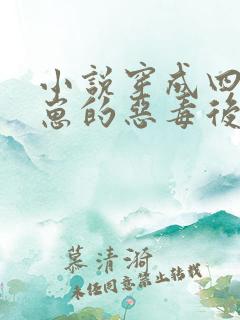 小說穿成四
崽的惡毒後
慕清漪
未经同意禁止转载